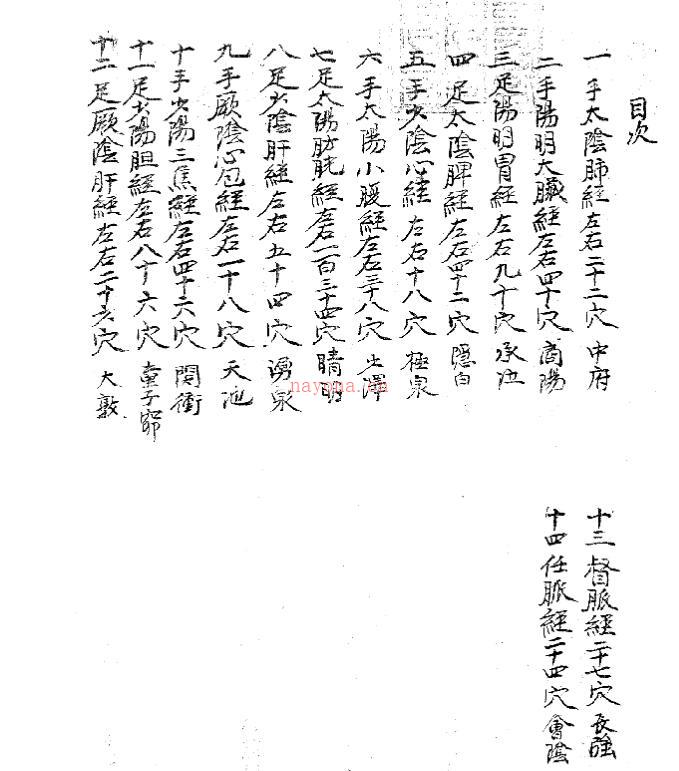 目次
一 手太陰肺經左右二十二穴 中府
二 手陽明大臟經左右四十穴 商陽
三 足陽明胃經左右九十穴 承泣
四 足太陰脾經左右四十二穴 隱白
五 手少陰心經 左右十八穴 極泉
六 手太陽小腹經左右三十八穴 少澤
七 足太陽膀胱經左右一百三十四穴 睛明
八 足少陰肝經左右五十四穴 湧泉
九 手厥陰心包經左右一十八穴 天池
十 手少陽三焦經左右四十六穴 関衝
十一 足少陽胆經左右八十六穴 童子窌
十二 足厥陰肝經左右二十六穴 大敦
十三 督脈經二十七穴 長強
十四 任脈經二十四穴 會陰
nayona.cn